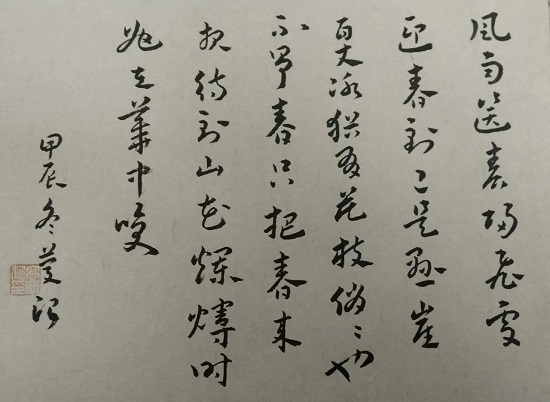 風雨送春歸飛雪
迎春到已是懸崖
百丈冰猶有花枝俏〻也
不爭春只把春來
報待到山花爛熳时
她在叢中笑
甲辰冬